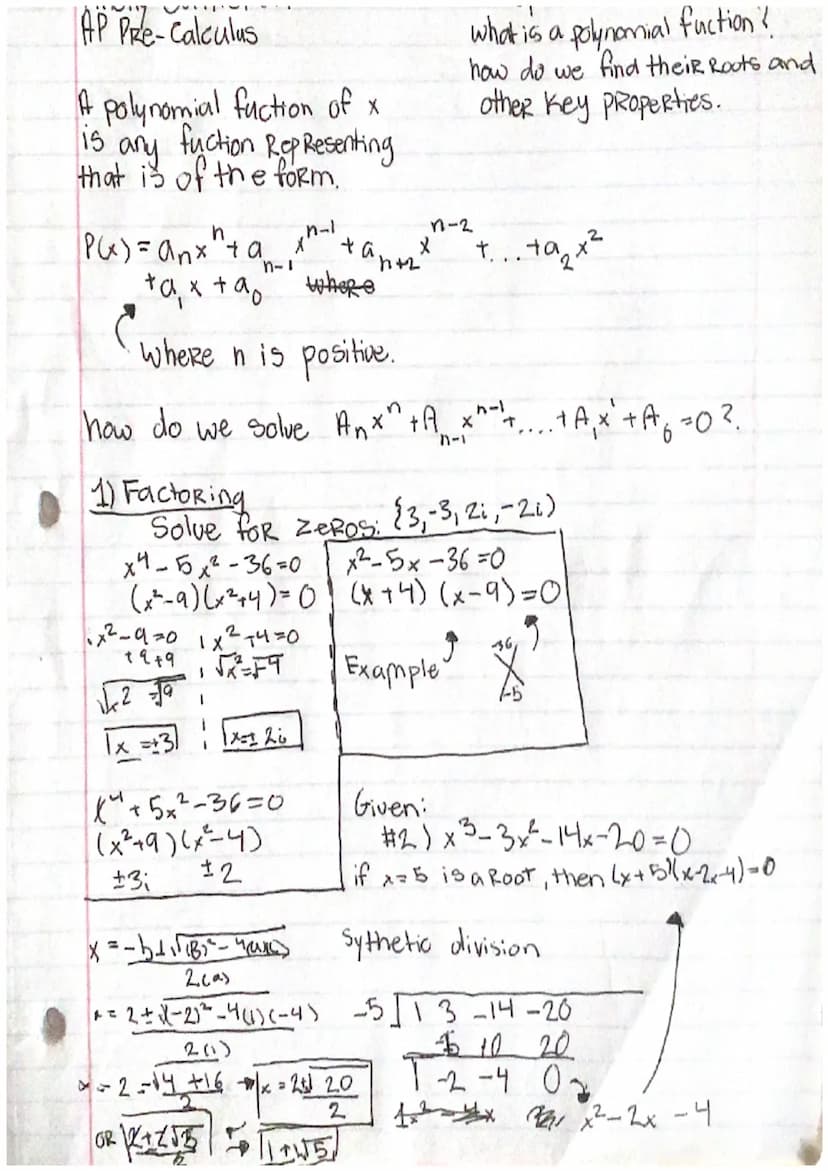 AP PRe-Calculus
what is a polynomial fuction?
how do we find theiR Roots and
otheR key PRopeRties.
A polynomial fuction of x
is any fuction RepResenting
that is of the foRm.
P(x) = aₙxⁿ + aₙ₋₁xⁿ⁻¹ + aₙ₊₂xⁿ⁻² + ... + a₂x²
+ a₁x + a₀ wheRe
wheRe n is positive.
how do we solve Aₙxⁿ + Aₙ₋₁xⁿ⁻¹ + .... + A₁x¹ + A₀ = 0 ?.
1) FactoRing
Solve foR zeRos: {3,-3, 2i, -2i)
x⁴ - 5x² - 36 = 0
(x²-9)(x²+4) = 0
x² - 9 = 0 | x² + 4 = 0
+9 +9 | √x² = √-4
√x² = √9
x = ±3 | x = ± 2i
x² - 5x - 36 = 0
(x + 4) (x - 9) = 0
Example
-36
-5
x⁴ + 5x² - 36 = 0
(x²+9)(x²-4)
±3i ±2
Given:
#2) x³ - 3x² - 14x - 20 = 0
if x = 5 is a Root, then (x + 5)(x - 2x - 4) = 0
x = -b ± √(B)² - 4(a)(c)
2(a)
x = 2 ± √(-2)² - 4(1)(-4)
2(1)
x = 2 - √4 + 16 → x = 2 ± √20
2 2
OR 2 ± 2√5 → 1 ± √5
2
Sythetic division
-5 | 1 3 -14 -20
-5 10 20
1 -2 -4 0
x² - 2x - 4